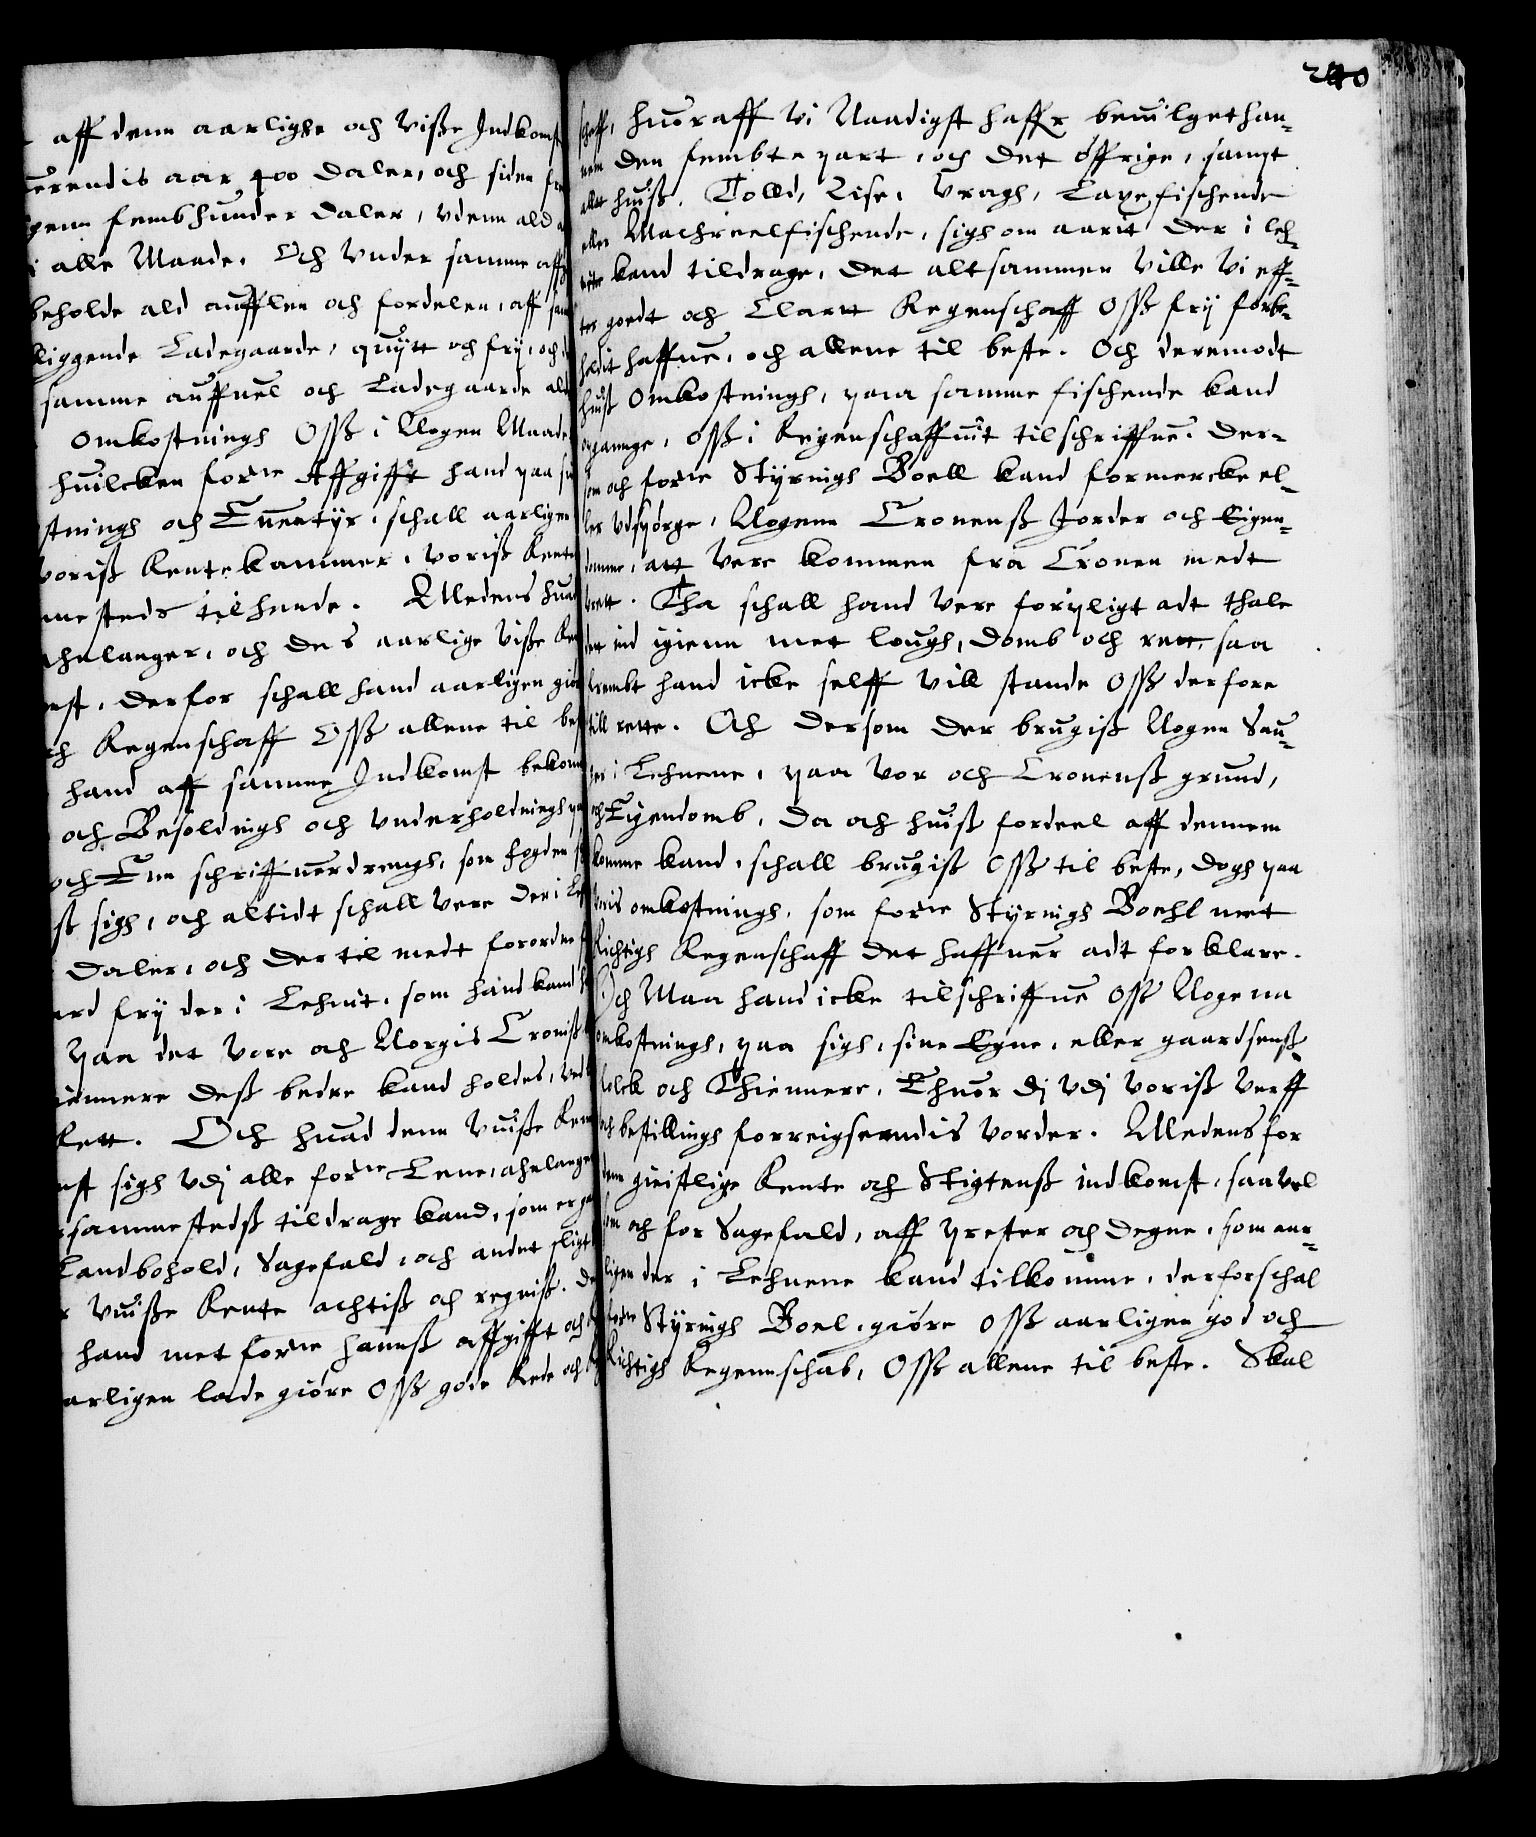 aff denn aarlighe och visse Indkomst
uerendis aar 400 daler, och siden
genn fembhunder daler, vdenn ald
i alle Maade. Och vnder samme
beholde ald aufflen och fordelen, aff
liggende Ladegaarde, quÿtt och frÿ, och
samme auffuel och Ladegaarde
omkostnings Oss i Nogen Maade
huilcken forne Affgifft hand paa
stnings och Euentÿr, schall aarligen
voriss Rentekammer, voriss Rente
mesteds tilhende. Medens huad
ahnlanger, och des aarlige visse
mst, derfor schall hand aarligen
ch Regenschaff Oss allene til
hand aff samme Indkomst
och Besoldnigh och vnderholdnings
och Enn schriffuerdrengh, som fogden
ss sigh, och altidt schall vere der i
daler, och der til medt forordne
frÿ der i Lehnit, som hand kand
Paa det vore och Norgis Croniss
dess bedre kand holdes,
Rett. Och huad denn vuisse
mst sigh vdj alle forne Lene, ahnlanger
sammestedss tildrage kand, som er
Landbohold, Sagefald, och andet sligt
vuisse Rente achtiss och regniss.
hand met forne hanss affgifft och
arligen lade giøre Oss gode Rede och
240
schaff, huoraff Vi Naadigst haffr beuilget han-
nem den fembte part, och det øffrige, sampt
alt huiss Tolld, Sise, Vragh, Laxefischende
eller Machreelfischende, sigh om aarit der i leh-
kand tildrage, det altsammen ville Vi eff-
ter goedt och Clart Regenschaff Oss frÿ forbe-
holdit haffue, och allene til beste. Och deremodt
huiss Omkostnings, paa samme fischende kand
opgannge, oss i Regenschaffuit tilschriffue. Der-
som och forne Stÿrnigh Boell kand formercke el-
ler vdspørge, Nogenn Cronenss Jorder och Eigen-
domme, att vere kommen fra Cronen medt
vrett. Tha schall hand vere forpligt adt thale
det ind igienn met lough, domb och rett, saa
fremt hand icke self vill stande Oss derfore
till rette. Och dersom der brugiss Nogen Sau-
ger i Lehnene, paa vor och Cronenss grund,
och Eyendomb, da och huiss fordeel aff dennem
komme kand, schall brugiss Oss til beste, dogh paa
voris omkostnings, som forne Stÿrnigh Boehl met
Richtigh Regenschaff det haffuer adt forklare.
Och Maa hand icke tilschriffue Oss Nogenn
omkostnings, paa sigh, sine Egne, eller gaardsenss
folck och Thiennere, Ehuor dj vdj voriss verff
och bestillings forreigsendis vorder. Medens for
dem gieistlige Rente och Stigtenss indkomst, saavel
som och for Sagefald, aff prester och degne, som aar-
ligen der i Lehnene kand tilkomme, derfor schal
forne Stÿrnigh Boel, giøre Oss aarligen god och
Richtigh Regennschab, Oss allene til beste. Skal